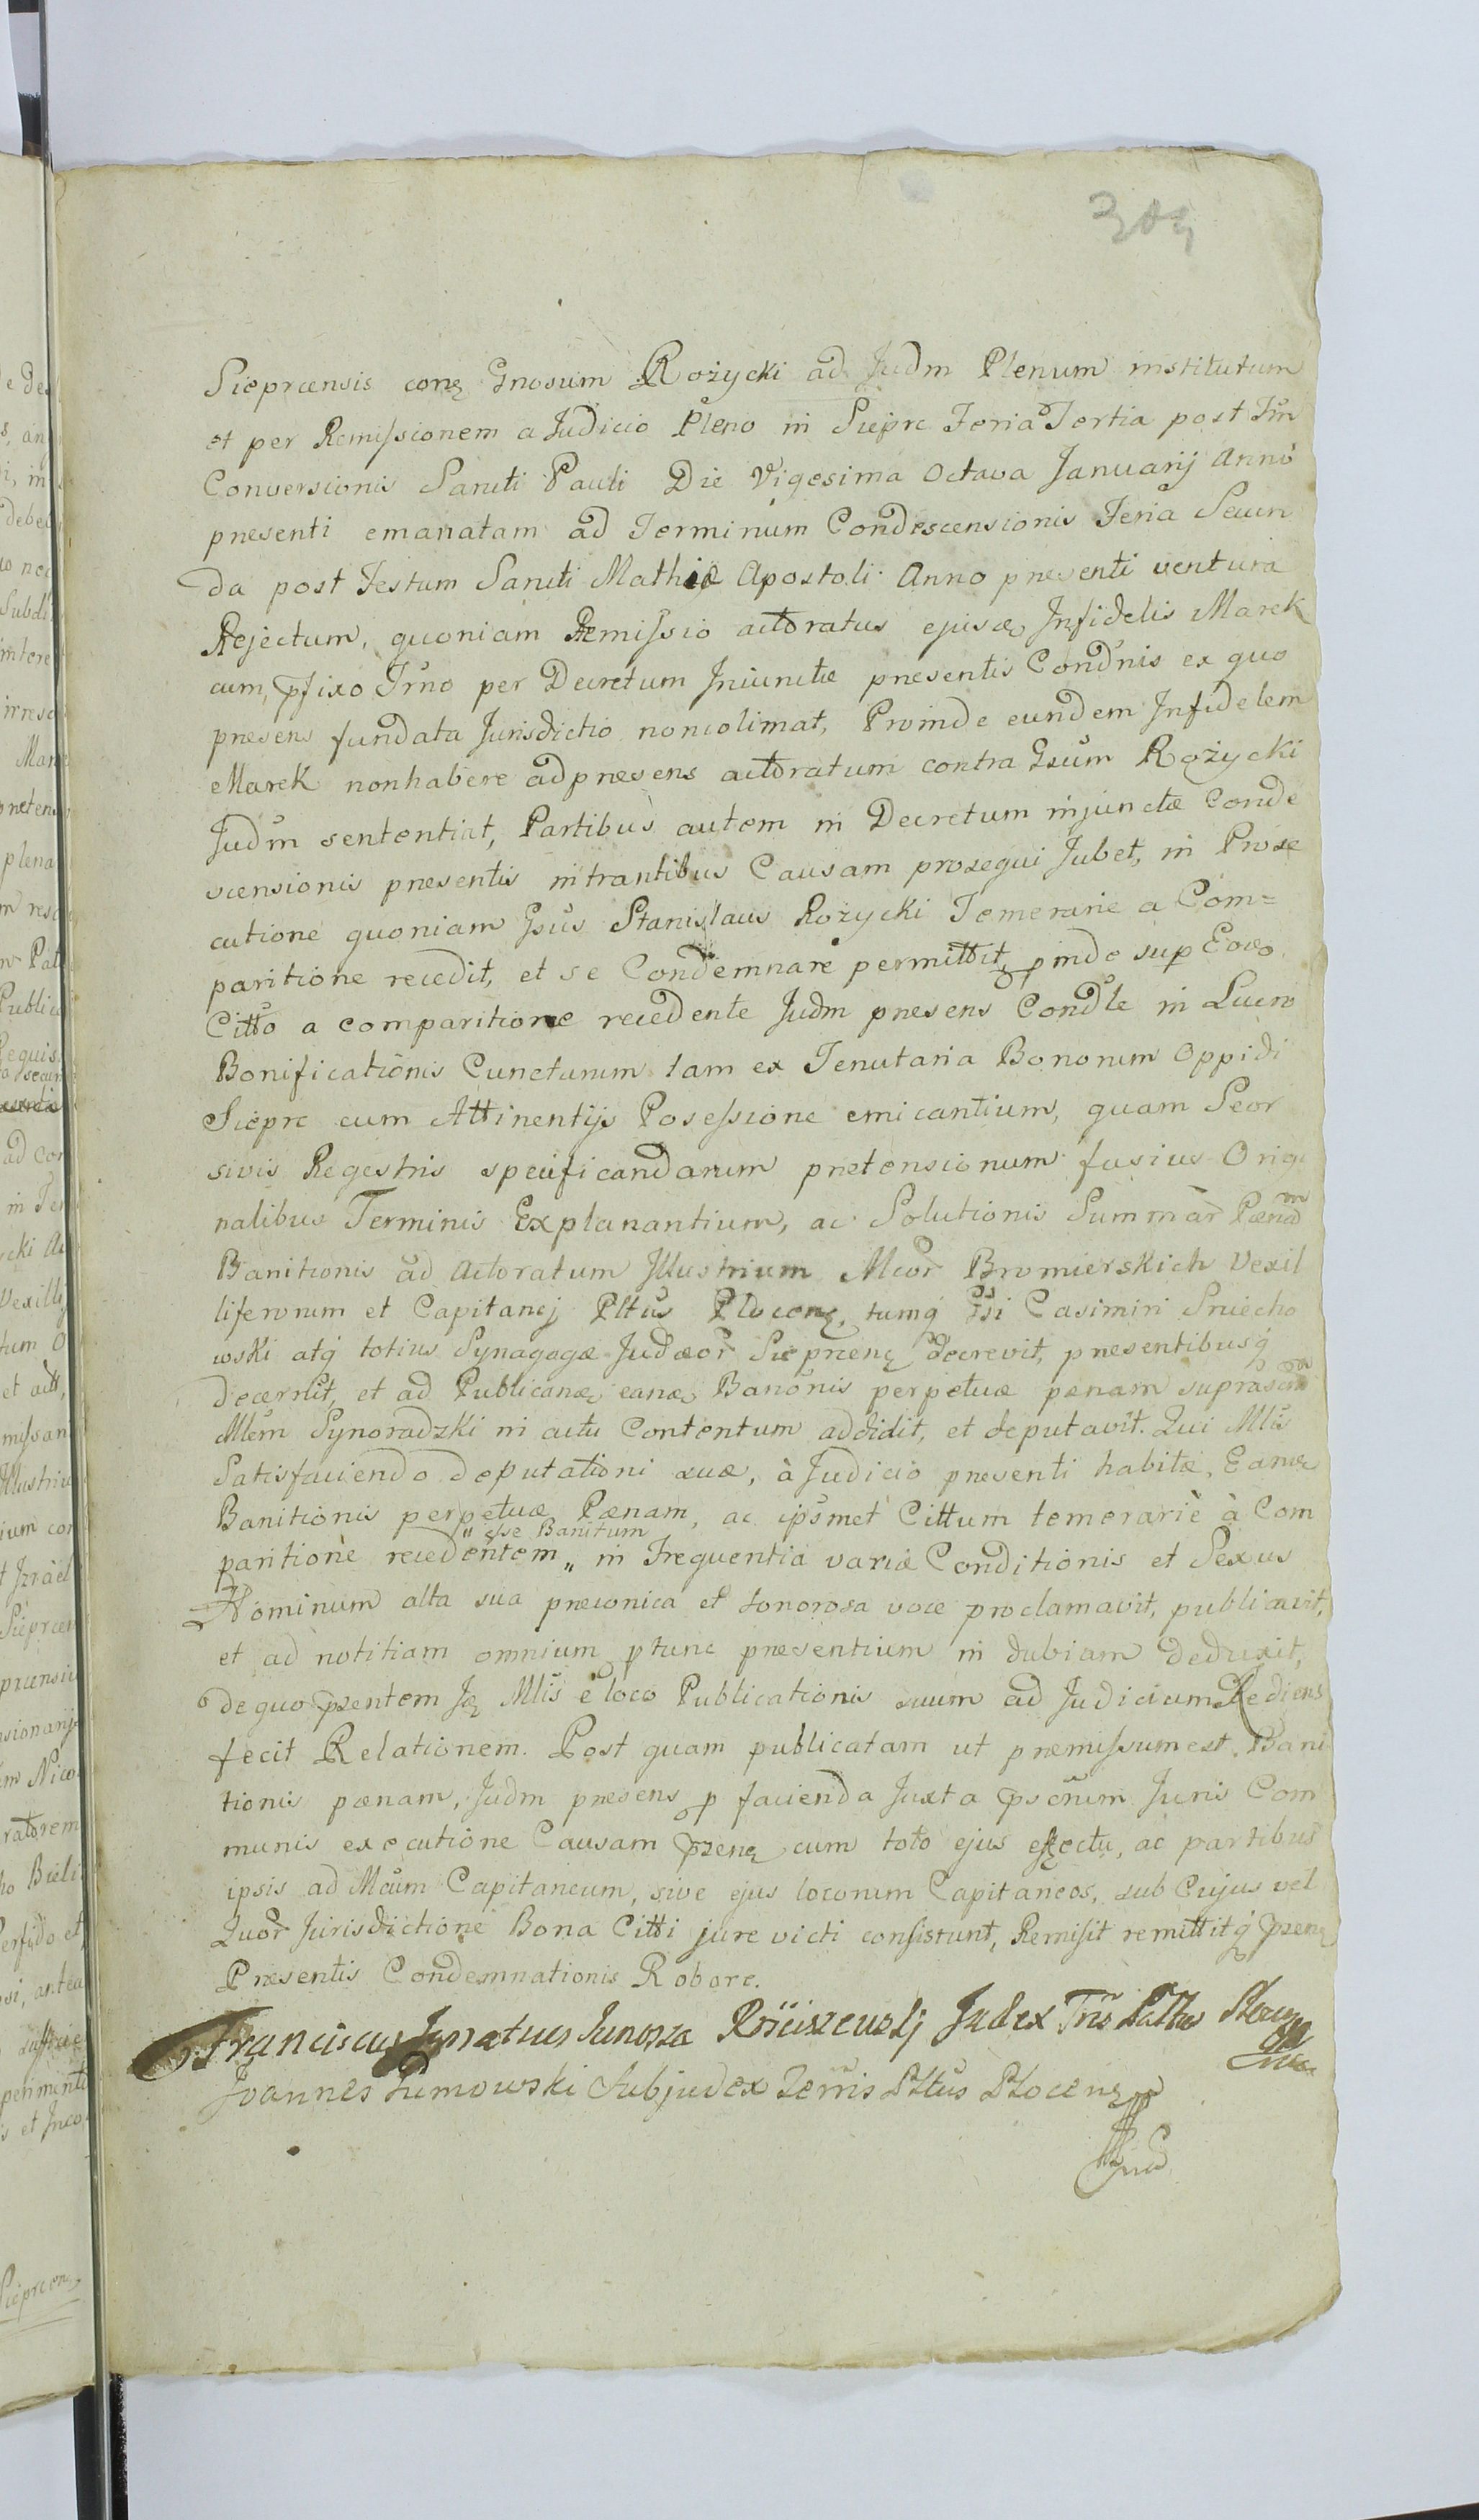 309
Sieprcensis conę Gnosum Rożycki ad Judm Plenum institutum
et per Remissionem a Judicio Pleno in Sieprc Feria Tertia post Ftũ
Conversionis Sancti Pauli Die Vigesima Octava Januarij Anno
presenti emanatam ad Terminum Condescensionis Feria Secun
da post Festum Sancti Mathiæ Apostoli Anno presenti ventura
Rejectum, quoniam Remissio actoratus Infidelis Marek
cum pfixo Trño per Decretum Iniunctæ presentis Condñis ex quo
presens fundata Jurisdictio noncolimat, Proinde eundem Infidelem
Marek nonhabere adpræsens actoratum contra Gsũm Rożycki
Judm sententiat, Partibus autem in Decretum injunctæ Conde
scensionis presentis intrantibus Causam prosequi Jubet, in Prose
cutione quoniam Gsũs Stanislaus Rożycki Temerarie a Com=
paritione recedit, et se Condemnare permittit, pinde sup Eoo
Citto a comparitione recedente Judm presens Condle in Lucro
Bonificationis Cuncturum tam ex Tenutaria Bonorum Oppidi
Sieprc cum Attinentijs Posessione emicantium, quam Seor
sivis Regestris specificandarum pretensionum fusius Origi
nalibus Terminis Explanantium, ac Solutionis Summar Pænam
Banitionis ad Actoratum Illustrium Mcor Bromierskich Vexil
liferorum et Capitanej Pltũs Plocenę, tumq Gsi Casimiri Sniecho
wski atq totius Synagagæ Judæor Sieprcenę decrevit, presentibusq
decernit, et ad Publicanæ eanæ Banonis perpetuæ pænam
Mlẽm Synoradzki in actu Contentum addidit, et deputavit. Qui Mlis
Satisfaciendo deputationi suæ, à Judicio presenti habitæ, Eanæ
Banitionis perpetuæ Pænam, ac ipsmet Cittum temerariè à Com
paritione recedentem „ esse Banitum „ in Frequentia variæ Conditionis et Sexus
Hominum alta sua preconica et sonorosa voce proclamavit, publicavit,
et ad notitiam omnium ptunc presentium in dubiam deduxit,
de quo pzentem Mlis è loco Publicationis suum ad Judicium Rediens
fecit Relationem. Post quam publicatam ut præmissum est Bani
tionis pænam, Judm presens p facienda Juxta pscrũm Juris Com
munis executione Causam pzenę cum toto ejus effectu, ac partibus
ipsis ad Mcũm Capitaneum, sive ejus locorum Capitaneos, sub Cujus vel
Quor Jurisdictione Bona Citti jure victi consistunt, Remisit remittitq pzenę
Presentis Condemnationis Robore.
Franciscus Ignatius Junosza Rosciszewskj Judex Tris Plttus
Joannes Zumowski Subjudex Terris Pltus Plocenę